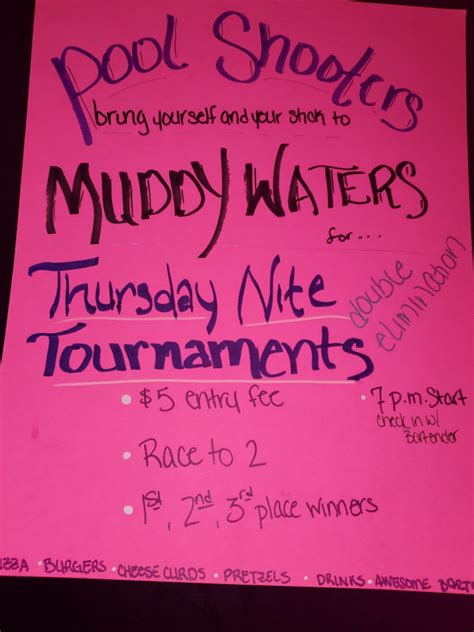 Pool Shooters
bring yourself and your stick to
MUDDY WATERS
for...
Thursday Nite
Tournaments
double
elimination
• $5 entry fee
• 7 p.m. Start
check in w/
Bartender
• Race to 2
• 1st, 2nd, 3rd place winners
• BURGERS • CHEESE CURDS • PRETZELS • DRINKS • AWESOME